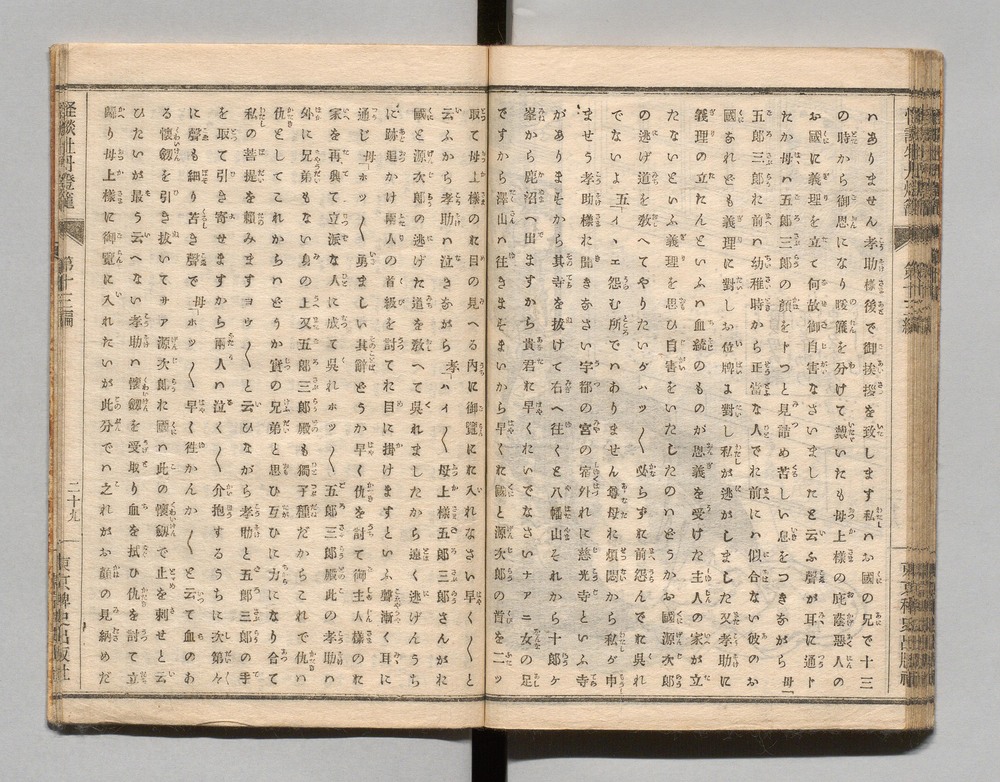 ハありません孝助樣後で御挨拶を致します私ハお國の兄で十三
の時から御恩になり暖簾を分けて戴いたも母上樣の庇蔭惡人の
お國に義理を立て何故御自害なさいましたと云ふ聲が耳に通ト
たか母ハ五郎三郎の顔をトつと見詰め苦しい息をつきながら 母「
五郎三郎お前ハ幼稚時から正當な人でお前にハ似合ない彼のお
國なれども義理に對しお位牌に對し私が逃がしました又孝助に
義理の立たんといふハ血統のものが恩義を受けた主人の家が立
たないといふ義理を思ひ自害をいたしたのハどうかお國源次郎
の逃げ道を敎へてやりたいゲハッ〱必らずお前怨んでお呉れ
でないよ 五「イヽエ怨む所でハありません尊母お煩悶から私ゲ申
ませう孝助樣お聞きなさい宇都の宮の宿外れに慈光寺といふ寺
がありますそから其寺を抜けて右へ往くと八幡山それから十郎ヶ
峯から鹿沼へ出ますから貴君お早くおいでなさいナアニ女の足
ですから澤山ハ往きますまいから早くお國と源次郎の首を二ッ
取て母上樣のお目の見へる内に御覽にお入れなさい早く〱と
云ふから孝助ハ泣きながら 孝「ハイ〱母上樣五郎三郎さんがお
國と源次郎の逃げた道を敎へて呉れましたから遠く逃げんうち
に跡追かけ兩人の首級を討てお目に掛けますといふ聲漸く耳に
通じ 母「ホッ〱勇ましい其辭どうか早く仇を討て御主人樣のお
家を再興て立派な人に成て呉れホッ〱五郎三郎殿此の孝助ハ
外に兄弟もない身の上又五郎三郎殿も獨子種だからこれで仇ハ
仇としてこれからハどうか實の兄弟と思ひ互ひに力になり合て
私の菩提を賴みますヨウ〱と云ひながら孝助と五郎三郎の手
を取て引き寄せますから兩人ハ泣く〱介抱するうちに次第々
に聲も細り苦しき聲で 母「ホッ〱早く徃かんか〱と云て血のあ
る懐劔を引き抜いてサア源次郎お國ハ此の懐劔で止を刺せと云
ひたいが最う云へない孝助ハ懐劔を受取り血を拭ひ仇を討て立
歸り母上樣に御覽に入れたいが此分でハ之れがお顔の見納めだ
怪談牡丹燈籠 第十三編
二十九
東京稗史出版社